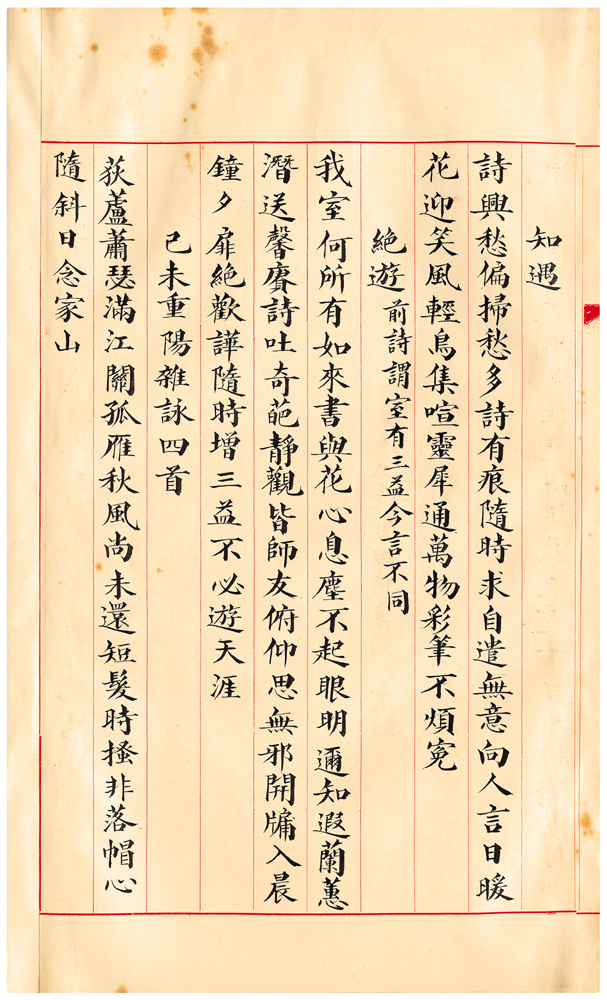 知遇
詩興愁偏掃愁多詩有痕隨時求自遣無意向人言日暖
花迎笑風輕鳥集喧靈犀通萬物彩筆不煩冤
絕遊前詩謂室有三益今言不同
我室何所有如來書與花心息塵不起眼明邇知遐蘭蕙
潛送馨賡詩吐奇葩靜觀皆師友俯仰思無邪開牗入晨
鐘夕扉絕歡譁隨時增三益不必遊天涯
己未重陽雜詠四首
荻蘆蕭瑟滿江關孤雁秋風尚未還短髮時搔非落帽心
隨斜日念家山